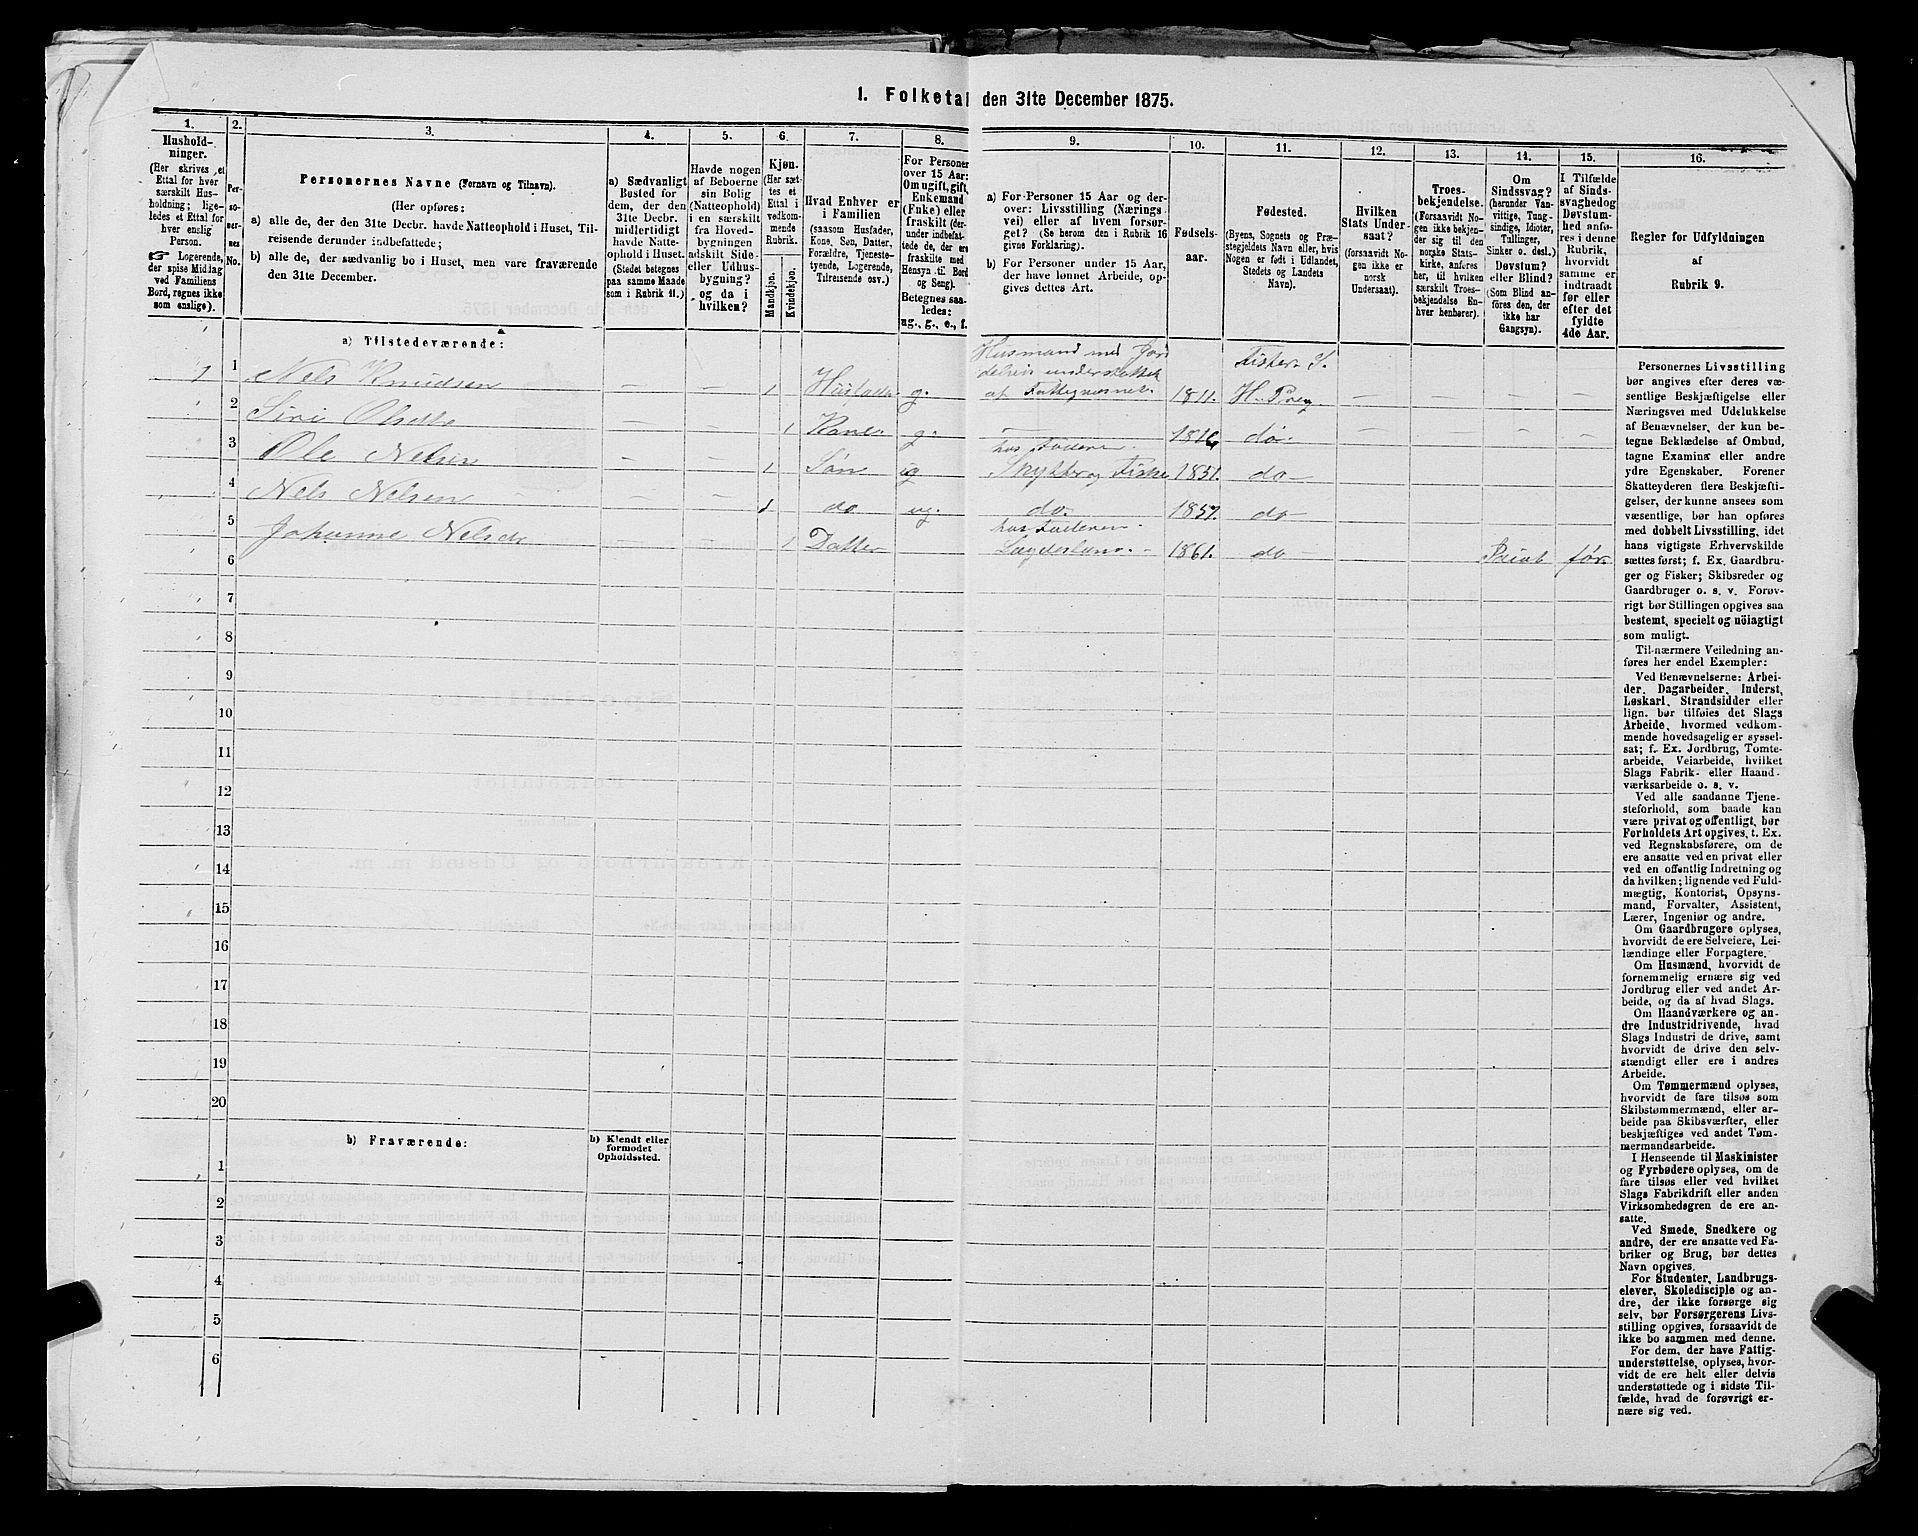 1. Folketal den 31te December 1875.
1.
Hushold-
ninger.
(Her skrives et
Ettal for hver
særskilt Hus-
holdning; lige-
ledes et Ettal for
hver enslig
Person.
☞ Logerende,
der spise Middag
ved Familiens
Bord, regnes ikke
som enslige).
2.
Per-
so-
ner-
nes
No.
3.
Personernes Navne (Fornavn og Tilnavn).
(Her opføres:
a) alle de, der den 31te Decbr. havde Natteophold i Huset, Til-
reisende derunder indbefattede;
b) alle de, der sædvanlig bo i Huset, men vare fraværende
den 31te December.
4.
a) Sædvanligt
Bosted for
dem, der den
31te Decbr.
midlertidigt
havde Natte-
ophold i Huset.
(Stedet betegnes
paa samme Maade
som i Rubrik 11.)
5.
Havde nogen
af Beboerne
sin Bolig
(Natteophold)
i en særskilt
fra Hoved-
bygningen
adskilt Side-
eller Udhus-
bygning?
og da i
hvilken?
6.
Kjøn.
(Her sæt-
tes et
Ettal i
vedkom-
mende
Rubrik.
Mandkjøn.
Kvindekjøn.
7.
Hvad Enhver er
i Familien
(saasom Husfader,
Kone, Søn, Datter,
Forældre, Tjeneste-
tyende, Logerende,
Tilreisende osv.)
8.
For Personer
over 15 Aar:
Om ugift, gift,
Enkemand
(Enke) eller
fraskilt (der-
under indbefat-
tede de, der ere
fraskilte med
Hensyn til Bord
og Seng).
Betegnes saa-
ledes:
ug., g., e., f.
9.
a) For Personer 15 Aar og der-
over: Livsstilling (Nærings-
vei) eller af hvem forsør-
get? (Se herom den i Rubrik 16
givne Forklaring).
b) For Personer under 15 Aar,
der have lønnet Arbeide, op-
gives dettes Art.
10.
Fødsels-
aar.
11.
Fødested.
(Byens, Sognets og Præ-
stegjeldets Navn eller, hvis
Nogen er født i Udlandet,
Stedets og Landets
Navn).
12.
Hvilken
Stats Under-
saat?
(forsaavidt No-
gen ikke er
norsk
Undersaat).
13.
Troes-
bekjendelse.
(Forsaavidt No-
gen ikke bekjen-
der sig til den
norske Stats-
kirke, anføres
her, til hvilken
særskilt Troes-
bekjendelse En-
hver henhører).
14.
Om
Sindssvag?
(herunder Van-
vittige, Tung-
sindige, Idioter,
Tullinger,
Sinker o. desl.)
Døvstum?
eller Blind?
(Som Blind an-
føres den, der
ikke har
Gangsyn).
15.
I Tilfælde
af Sinds-
svaghed og
Døvstum-
hed anfø-
res i denne
Rubrik,
hvorvidt
samme er
indtraadt
før eller
efter det
fyldte
4de Aar.
16.
Regler for Udfyldningen
af
Rubrik 9.
a) Tilstedeværende:
1 1 Nels Knudsen — — 1 Husfader g. Husmand med Jord delvis understøttet af Fattigvæsnet 1811. H. Præg — — — —
2 Siri — — 1 Kone g. — do. — — — —
3 Ole Nelsen — — 1 Søn ug hos Faderen 1851. do —
4 Nels Nelsen — — 1 do ug. do. 1857. do —
5 Johanne Nelsdr 1 Datter hos Faderen 1861. do — før
6
7
8
9
10
11
12
13
14
15
16
17
18
19
20
b) Fraværende:
b) Kjendt eller
formodet
Opholdssted.
1
2
3
4
5
6
Personernes Livsstilling
bør angives efter deres væ-
sentlige Beskjæftigelse eller
Næringsvei med Udelukkelse
af Benævnelser, der kun be-
tegne Beklædelse af Ombud,
tagne Examina eller andre
ydre Egenskaber. Forener
Skatteyderen flere Beskjæfti-
gelser, der kunne ansees som
væsentlige, bør han opføres
med dobbelt Livsstilling, idet
hans vigtigste Erhvervskilde
sættes først; f. Ex. Gaardbru-
ger og Fisker; Skibsreder og
Gaardbruger o. s. v. Forøv-
rigt bør Stillingen opgives saa
bestemt, specielt og nöiagtigt
som muligt.
Til nærmere Veiledning an-
føres her endel Exempler:
Ved Benævnelserne: Arbei-
der, Dagarbeider, Inderst,
Løskarl, Strandsidder eller
lign. bør tilføies det Slags
Arbeide, hvormed vedkom-
mende hovedsagelig er syssel-
sat; f. Ex. Jordbrug, Tomte-
arbeide, Veiarbeide, hvilket
Slags Fabrik- eller Haand-
værksarbeide o. s. v.
Ved alle saadanne Tjene-
steforhold, som baade kan
være privat og offentligt, bør
Forholdets Art opgives, t. Ex.
ved Regnskabsførere, om de
ere ansatte ved en privat eller
ved en offentlig Indretning og
da hvilken; lignende ved Fuld-
mægtig, Kontorist, Opsyns-
mand, Forvalter, Assistent,
Lærer, Ingeniør og andre.
Om Gaardbrugere oplyses,
hvorvidt de ere Selveiere, Lei-
lændinge eller Forpagtere.
Om Husmænd, hvorvidt de
fornemmelig ernære sig ved
Jordbrug eller ved andet Ar-
beide, og da af hvad Slags.
Om Haandværkere og an-
dre Industridrivende, hvad
Slags Industri de drive, samt
hvorvidt de drive den selv-
stændigt eller ere i andres
Arbeide.
Om Tømmermænd oplyses,
hvorvidt de fare tilsøs som
Skibstømmermænd, eller ar-
beide paa Skibsværfter, eller
beskjæftiges ved andet Tøm-
mermandsarbeide.
I Henseende til Maskinister
og Fyrbødere oplyses, om de
fare tilsøs eller ved hvilket
Slags Fabrikdrift eller anden
Virksomhedsgren de ere an-
satte.
Ved Smede, Snedkere og
andre, der ere ansatte ved Fa-
briker og Brug, bør dettes
Navn opgives.
For Studenter, Landbrugs-
elever, Skoledisciple og an-
dre, der ikke forsørge sig
selv, bør Forsørgerens Livs-
stilling opgives, forsaavidt de
ikke bo sammen med denne.
For dem, der have Fattig-
understøttelse, oplyses, hvor-
vidt de ere helt eller delvis
understøttede og i sidste Til-
fælde, hvad de forøvrigt er-
nære sig ved.